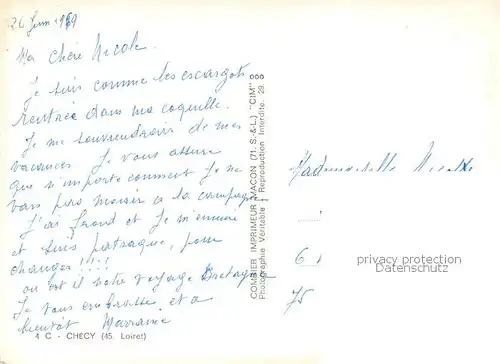 26 Juin 1969
Ma chère Nicole.
Je suis comme les escargots
rentrée dans ma coquille.
Je me souviendrais de mes
vacances Je vous assure
que n'importe comment Je ne
vais pas moisir a la campagne
J'ai froid et Je m'ennuie
et suis patraque, pour
changer !!!!
ou est il votre voyage Bretagne
Je vous embrasse et a
bientôt Marraine
4 C - CHECY (45. Loiret)
COMBIER IMPRIMEUR MACON (71. S.-&-L.) "CIM" ooo
Photographie Véritable - Reproduction Interdite. 29.
Mademoiselle
75
privacy protection
Datenschutz